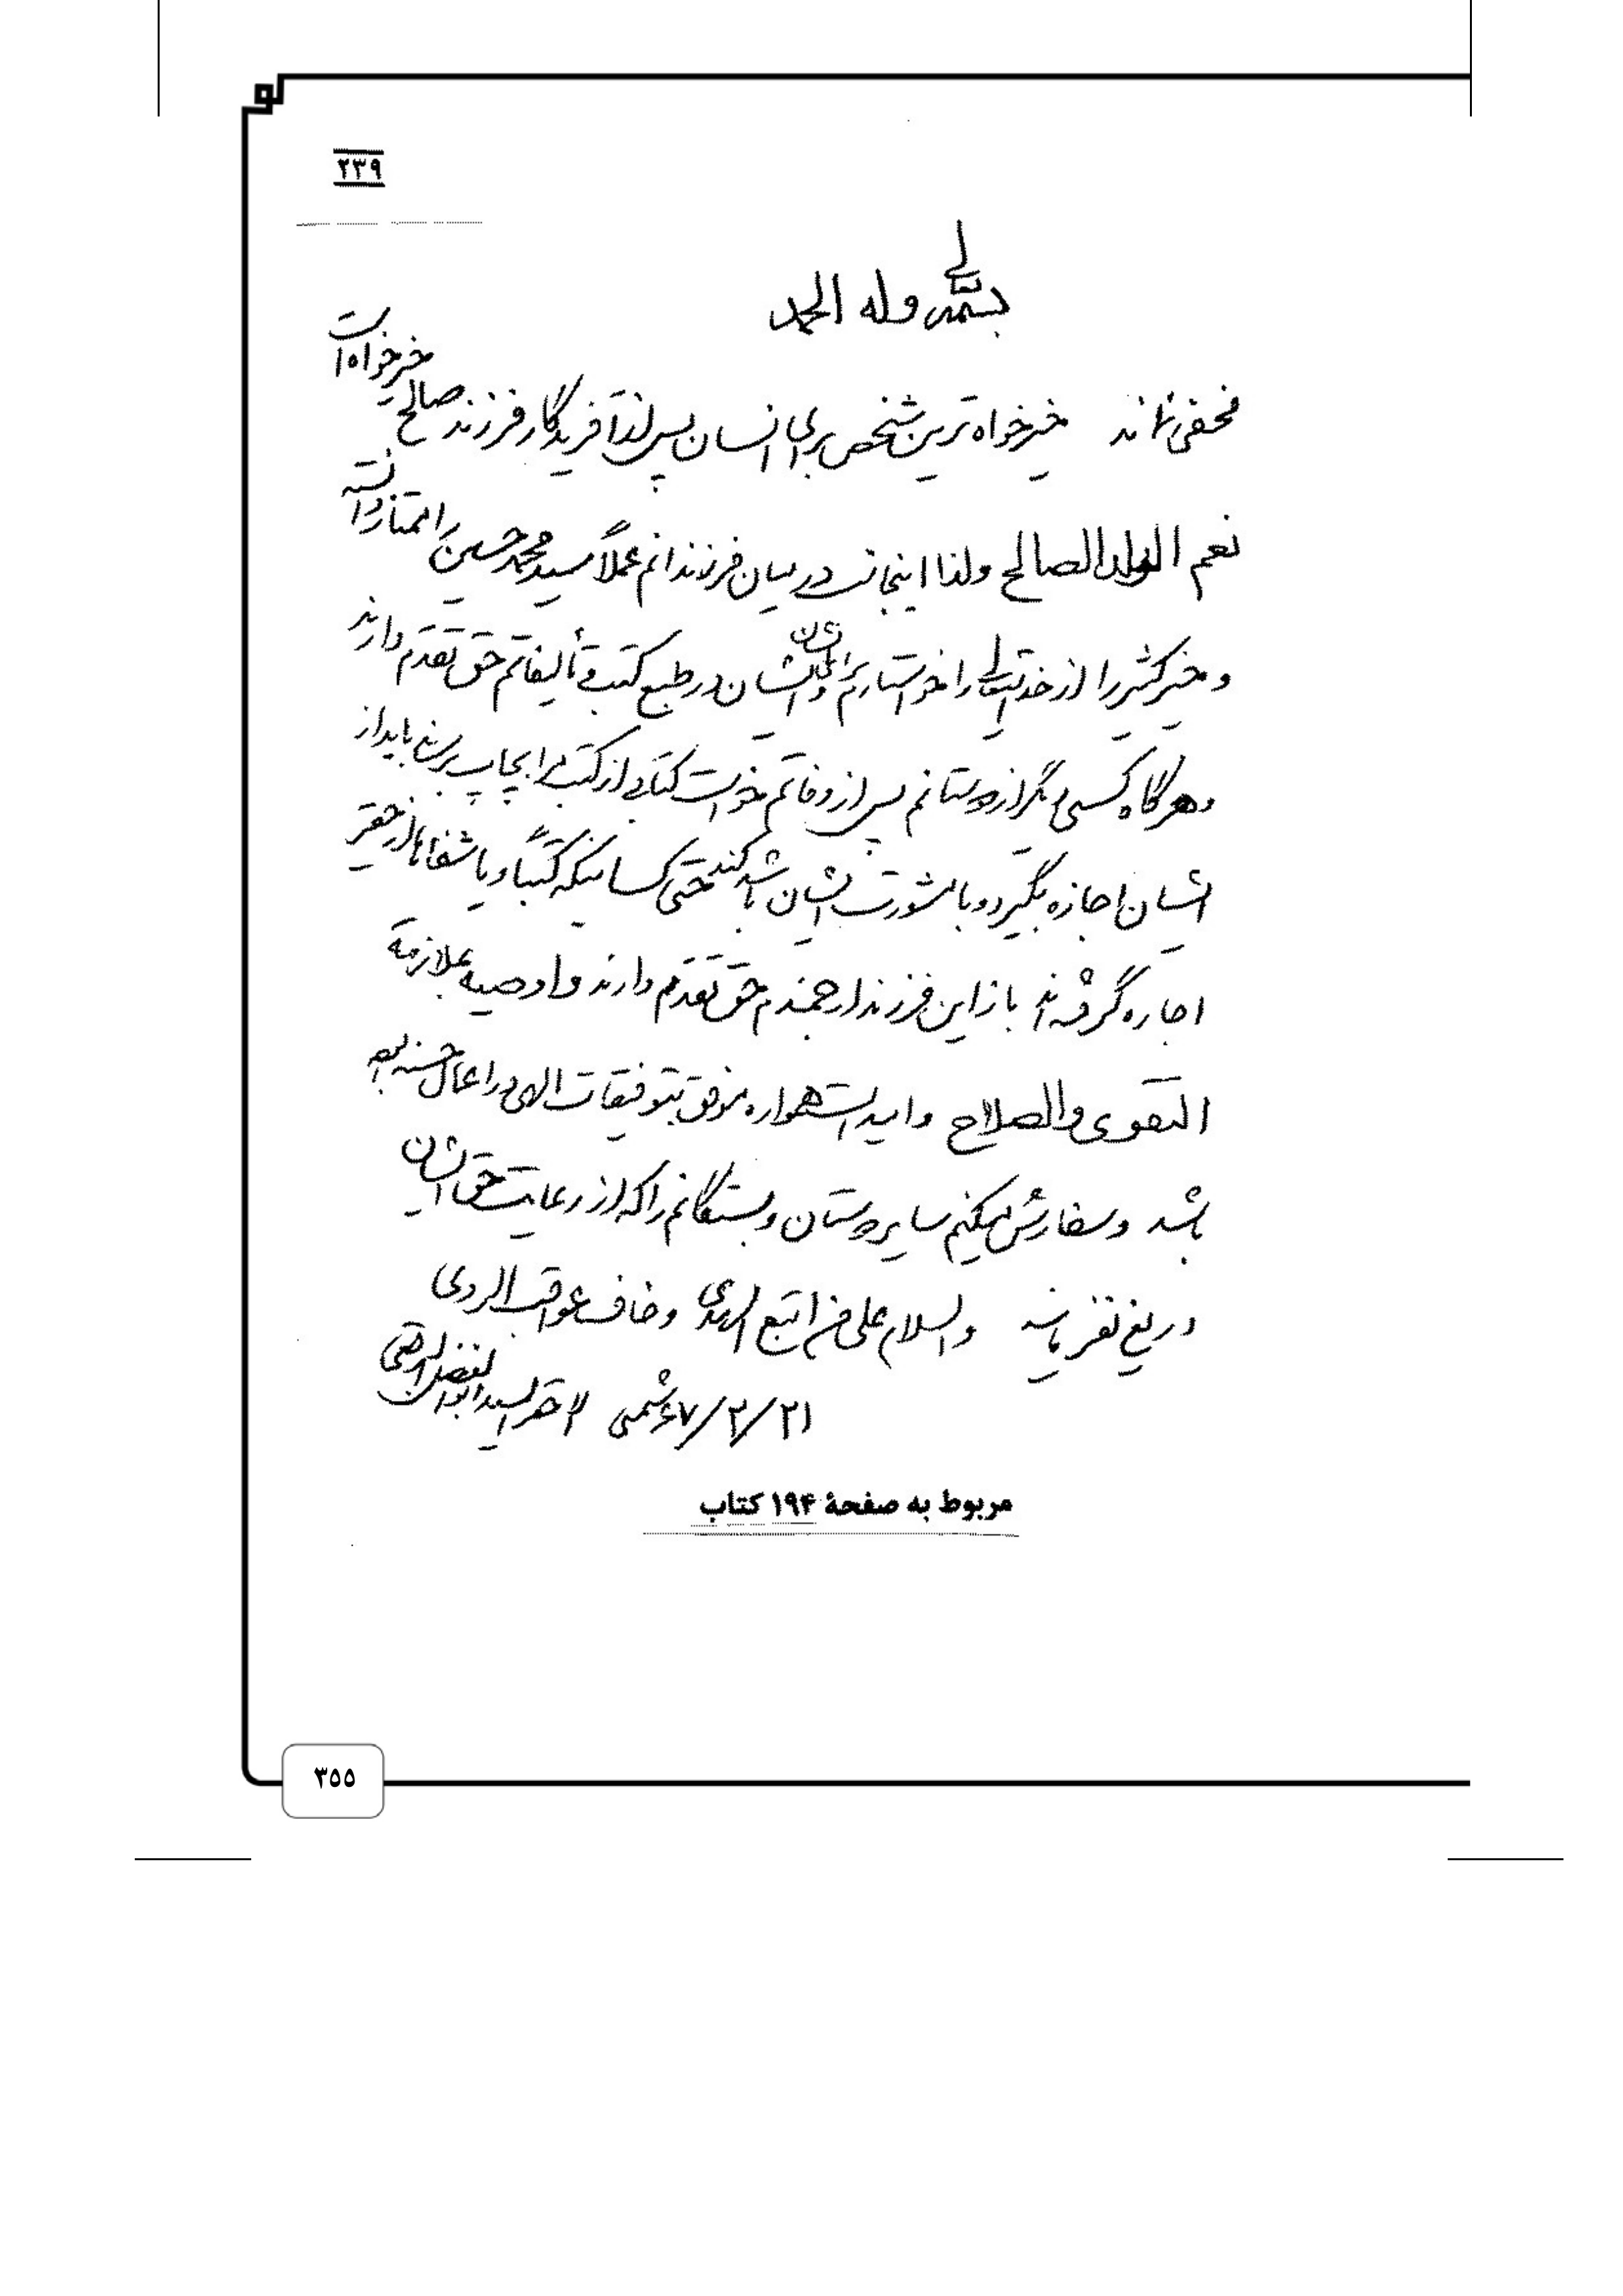 ۲۳۹
بسمه تعالی وله الحمد
مخفی نماند خیرخواه ترین شخص برای انسان پس از آفریدگار فرزند صالح خیرخواه است
نعم الولد الصالح ولذا اینجانب در میان فرزندانم عملاً سید محمد حسین را ممتاز دانسته
و خیر کثیر را از خدا تعالی برایشان خواستارم و ایشان در طبع کتب و تألیفاتم حق تقدم دارند
و هر گاه کسی دیگر از دوستانم پس از وفاتم خواست کتابی از کتب مرا بچاپ برساند باید از
ایشان اجازه بگیرد و با مشورت ایشان باشد حتی کسانیکه کتباً و یا شفاهاً از حقیر
اجازه گرفته اند باز این فرزند ارجمندم حق تقدم دارند و اوصیه بملازمة
التقوی والصلاح و امید است همواره موفق بتوفیقات الهی در اعمال حسنه
باشد و سفارش میکنم سایر دوستان و بستگانم را که از رعایت حق ایشان
دریغ نفرمایند والسلام علی من اتبع الهدی و خاف عواقب الردی
۶۷/۲/۲۱ شمسی الاحقر السید ابوالفضل البرقعی
مربوط به صفحهٔ ۱۹۴ کتاب
۳۵۵